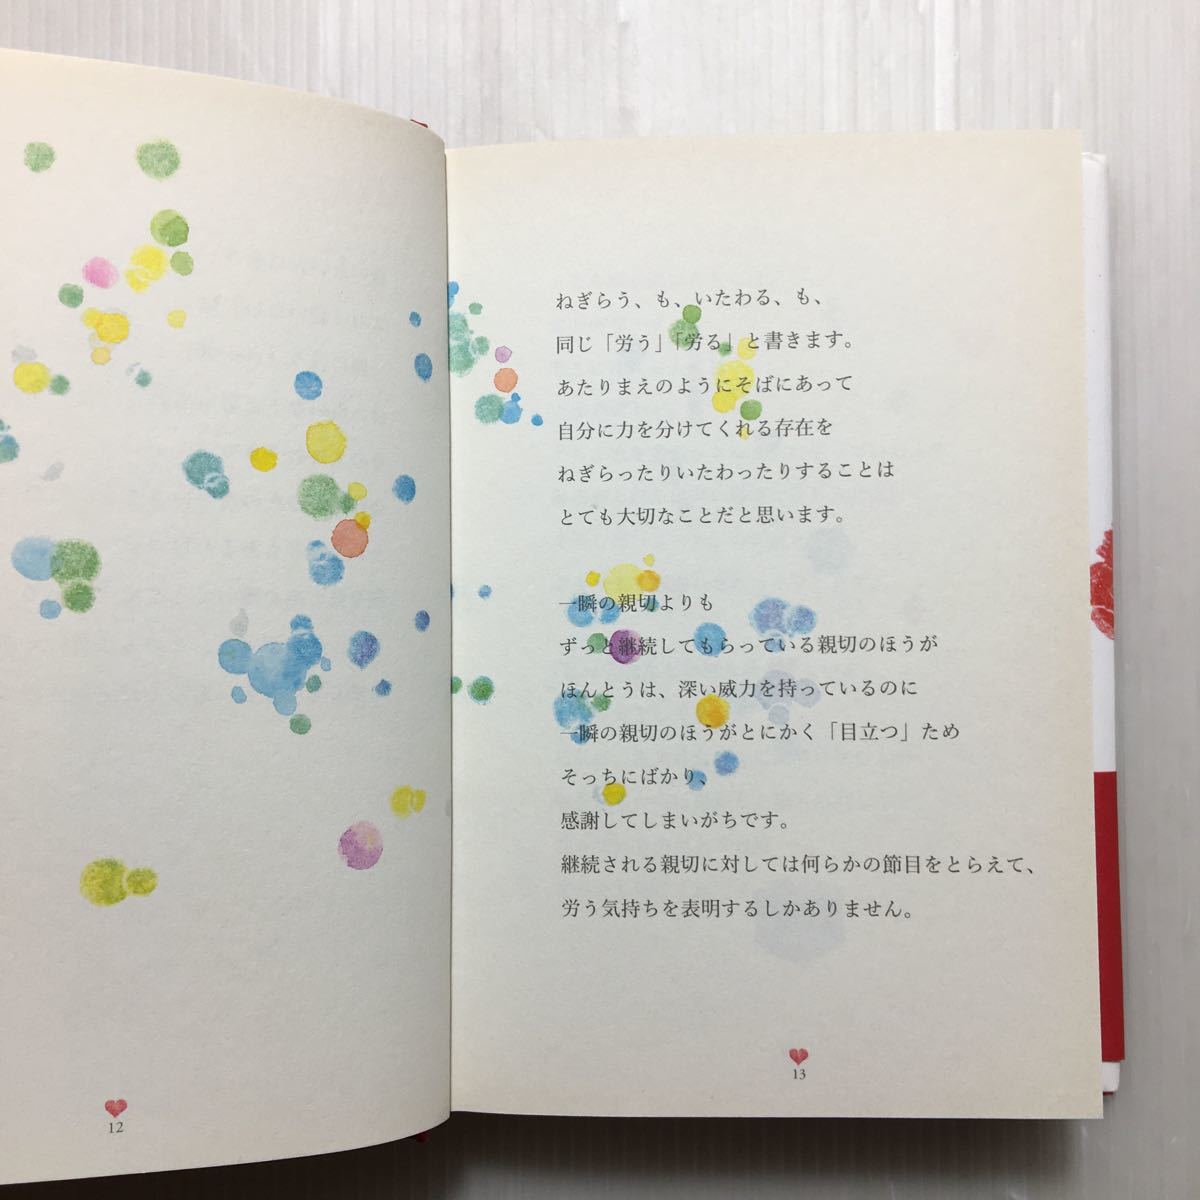 ねぎらう、も、いたわる、も、
同じ「労う」「労る」と書きます。
あたりまえのようにそばにあって
自分に力を分けてくれる存在を
ねぎらったりいたわったりすることは
とても大切なことだと思います。
一瞬の親切よりも
ずっと継続してもらっている親切のほうが
ほんとうは、深い威力を持っているのに
一瞬の親切のほうがとにかく「目立つ」ため
そっちにばかり、
感謝してしまいがちです。
継続される親切に対しては何らかの節目をとらえて、
労う気持ちを表明するしかありません。
12
13